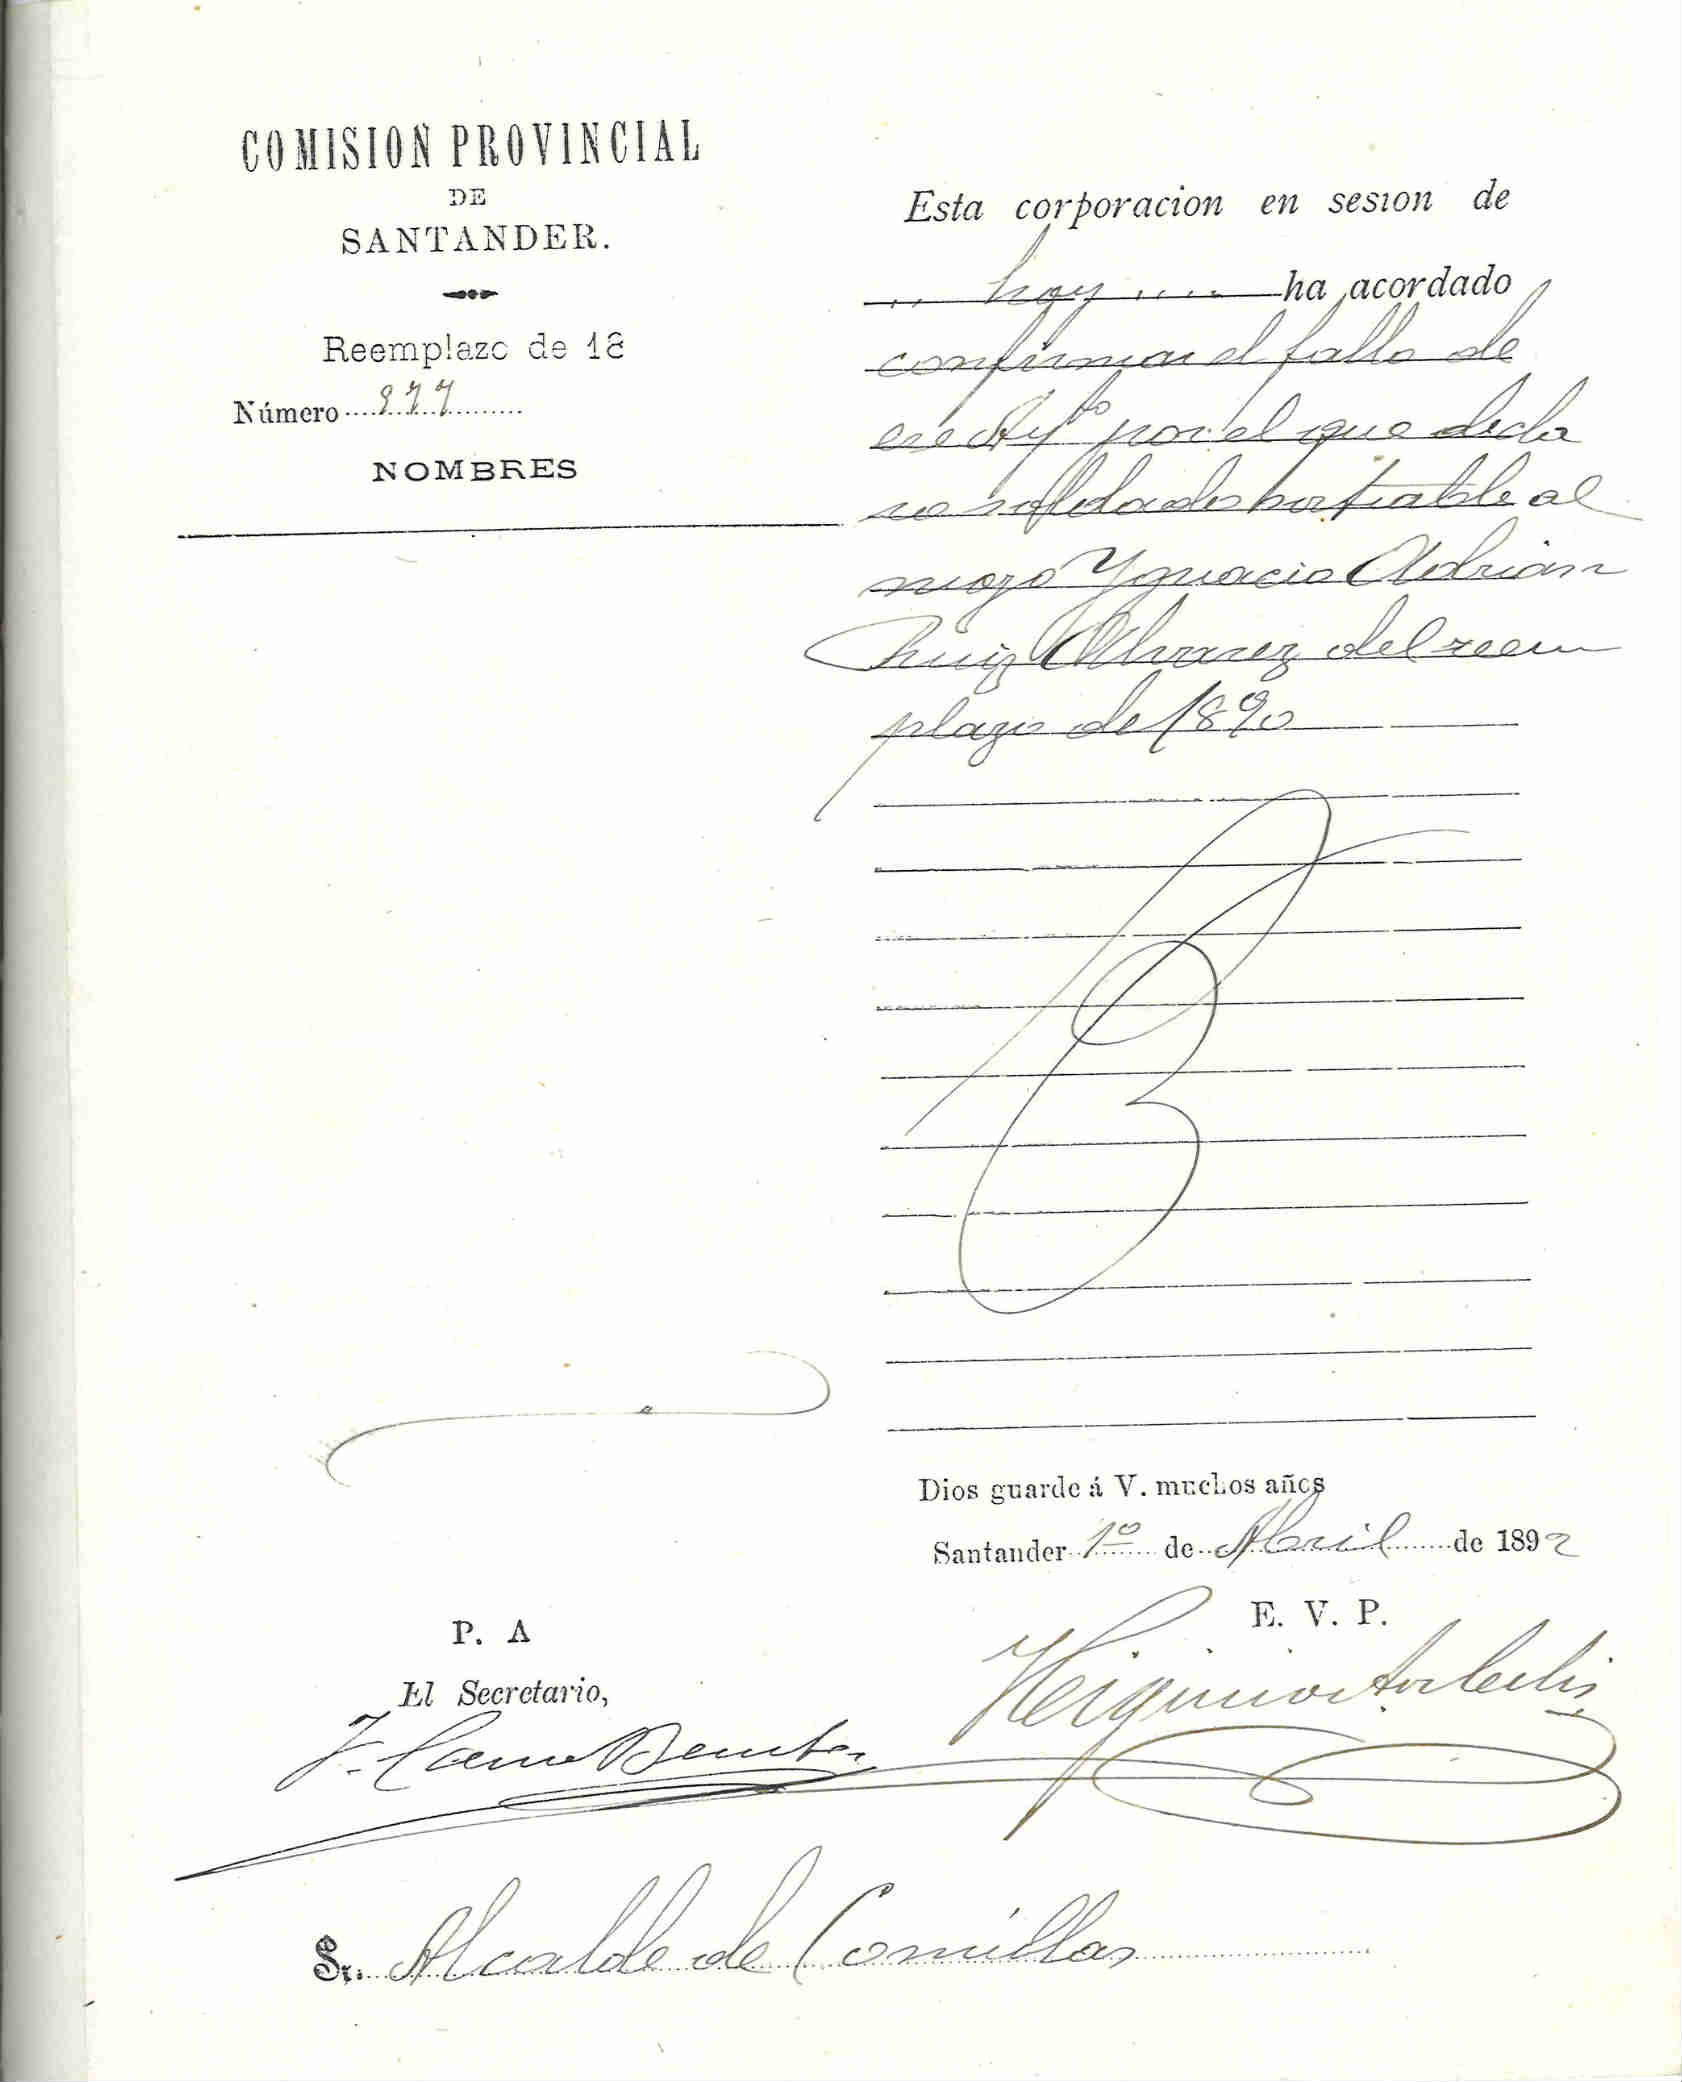 COMISION PROVINCIAL
DE
SANTANDER.
Reemplazo de 18
Número 977
NOMBRES
Esta corporacion en sesion de
hoy ha acordado
confirmar el fallo de
ese Ayto por el que decla
ra soldado sorteable al
mozo Ygnacio Adrian
Ruiz Alvarez del reem
plazo de 1890
Dios guarde á V. muchos años
Santander 1º de Abril de 1892
E. V. P.
Higinio
P. A
El Secretario,
Sr. Alcalde de Comillas